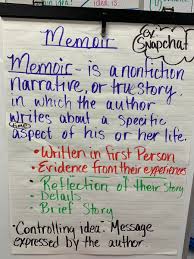 ex.
Snapchat
Memoir
Memoir - is a nonfiction
narrative, or true story,
in which the author
writes about a specific
time
aspect of his or her life.
• Written in first Person
• Evidence from their experiences
• Reflection of their story
• Details
• Brief Story
• Controlling idea - Message
expressed by the author.